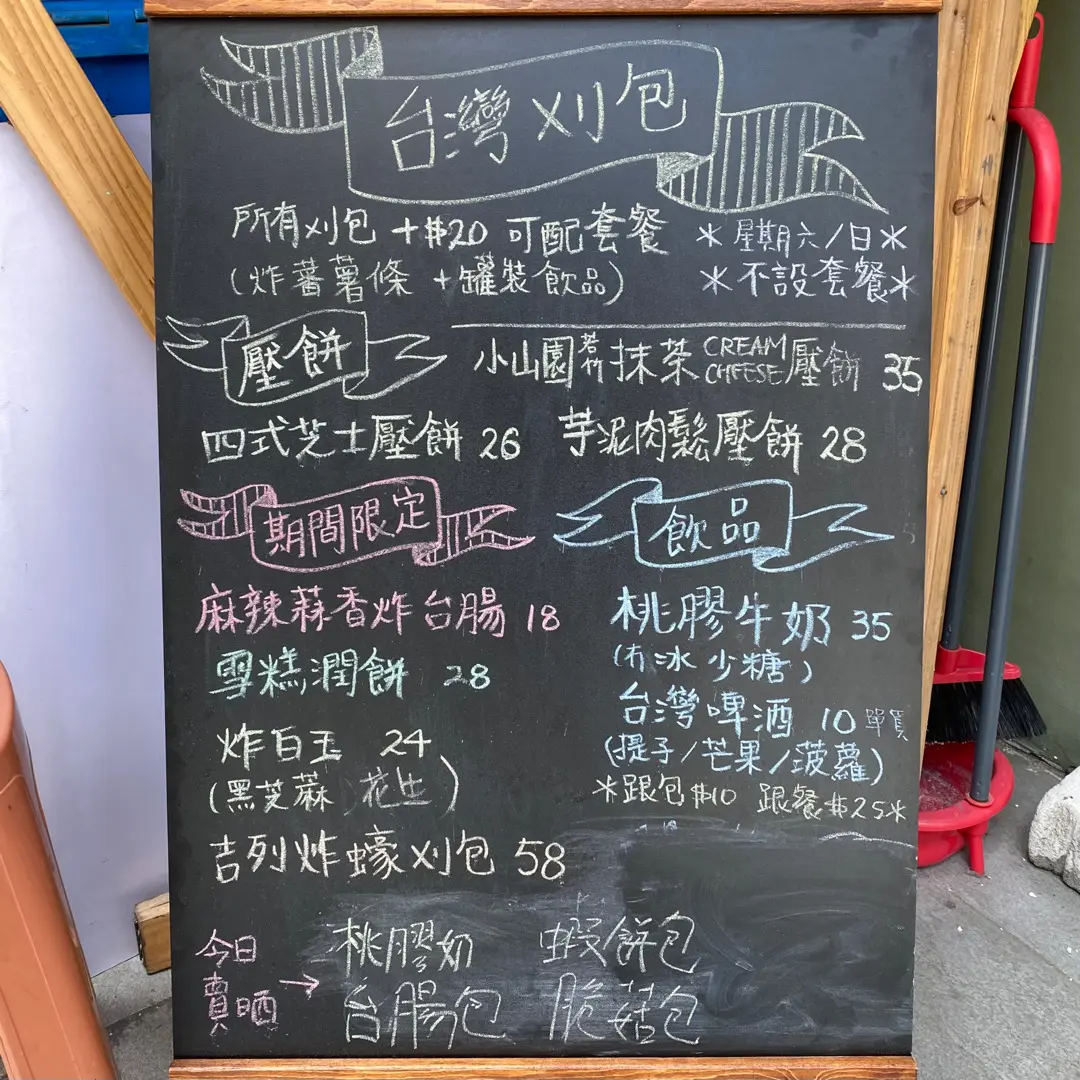 台灣刈包
所有刈包 +$20 可配套餐
(炸蕃薯條 +罐裝飲品)
＊星期六/日＊
＊不設套餐＊
壓餅
小山園若竹抹茶CREAM CHEESE壓餅 35
四式芝士壓餅 26
芋泥肉鬆壓餅 28
期間限定
麻辣蒜香炸台腸 18
雪糕潤餅 28
炸白玉 24
(黑芝蔴 花生)
吉列炸蠔刈包 58
飲品
桃膠牛奶 35
(冇冰少糖)
台灣啤酒 10單買
(提子/芒果/菠蘿)
＊跟包$10 跟餐$25＊
今日賣晒→
桃膠奶 蝦餅包
台腸包 脆菇包